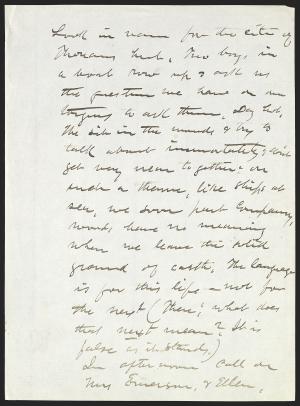 Look in vain for the site of
Thoreau's hut. Two boys in
a boat row up & ask us
the question we have on our
tongues to ask them. Day hot.
We sit in the woods & try to
talk about immortality; dont
get very near together on
such a theme, like ships at
sea, we soon part company,
words have no meaning
when we leave the solid
ground of earth. The language
is for this life — not for
the next (There; what does
that next mean? It is
false as it stands.)
In afternoon call on
Mrs Emerson, & Ellen,